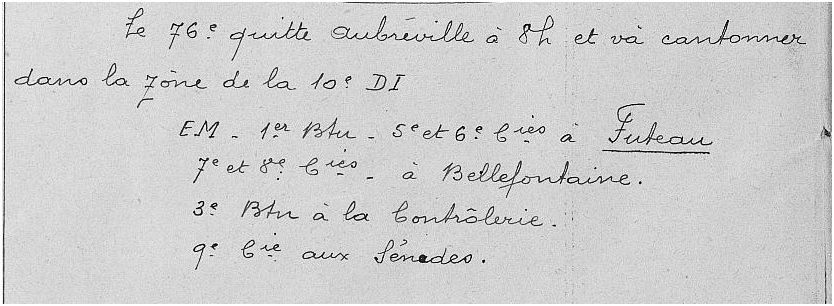 Le 76e quitte Aubréville à 8h et và cantonner
dans la zône de la 10e DI
EM - 1er Btn - 5e et 6e Cies à Futeau
7e et 8e Cies - à Bellefontaine.
3e Btn à la Contrôlerie.
9e Cie aux Sénades.